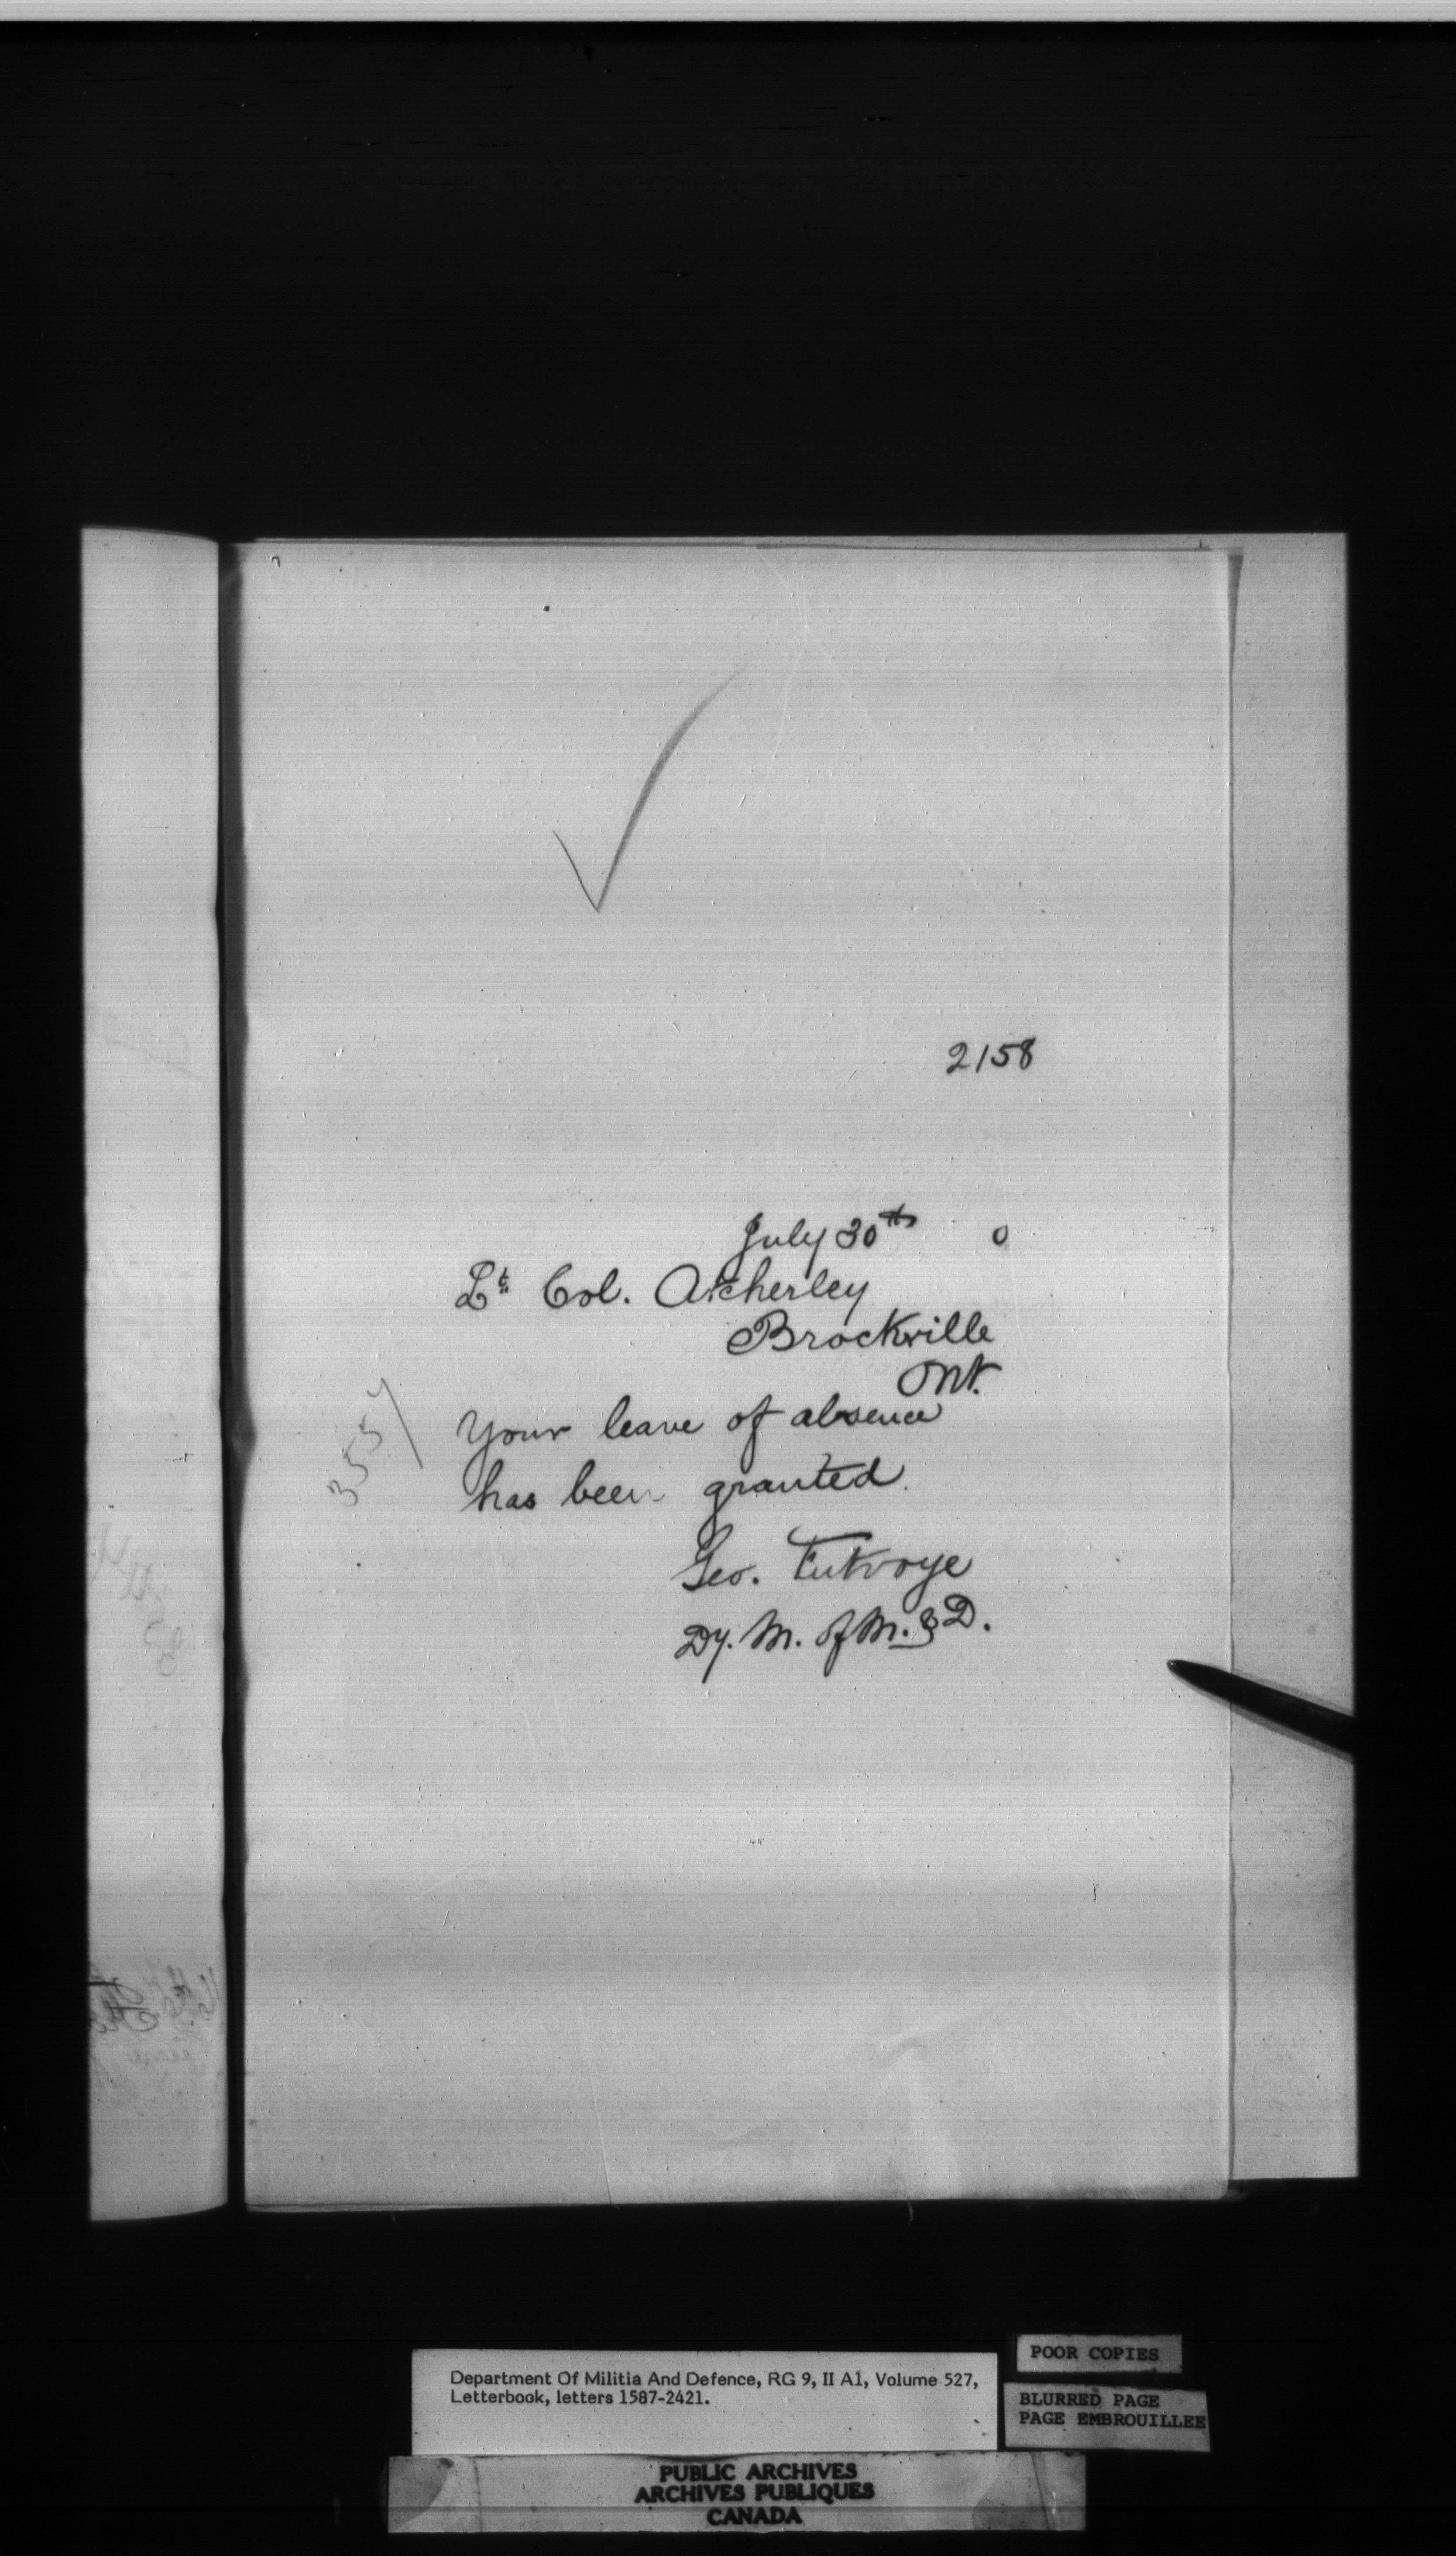 2158
July 30th 0
Lt Col. Atcherley
Brockville
Ont.
3557
Your leave of absence
has been granted.
Geo. Futvoye
Dy. M. of M. & D.
Department Of Militia And Defence, RG 9, II A1, Volume 527,
Letterbook, letters 1587-2421.
POOR COPIES
BLURRED PAGE
PAGE EMBROUILLEE
PUBLIC ARCHIVES
ARCHIVES PUBLIQUES
CANADA